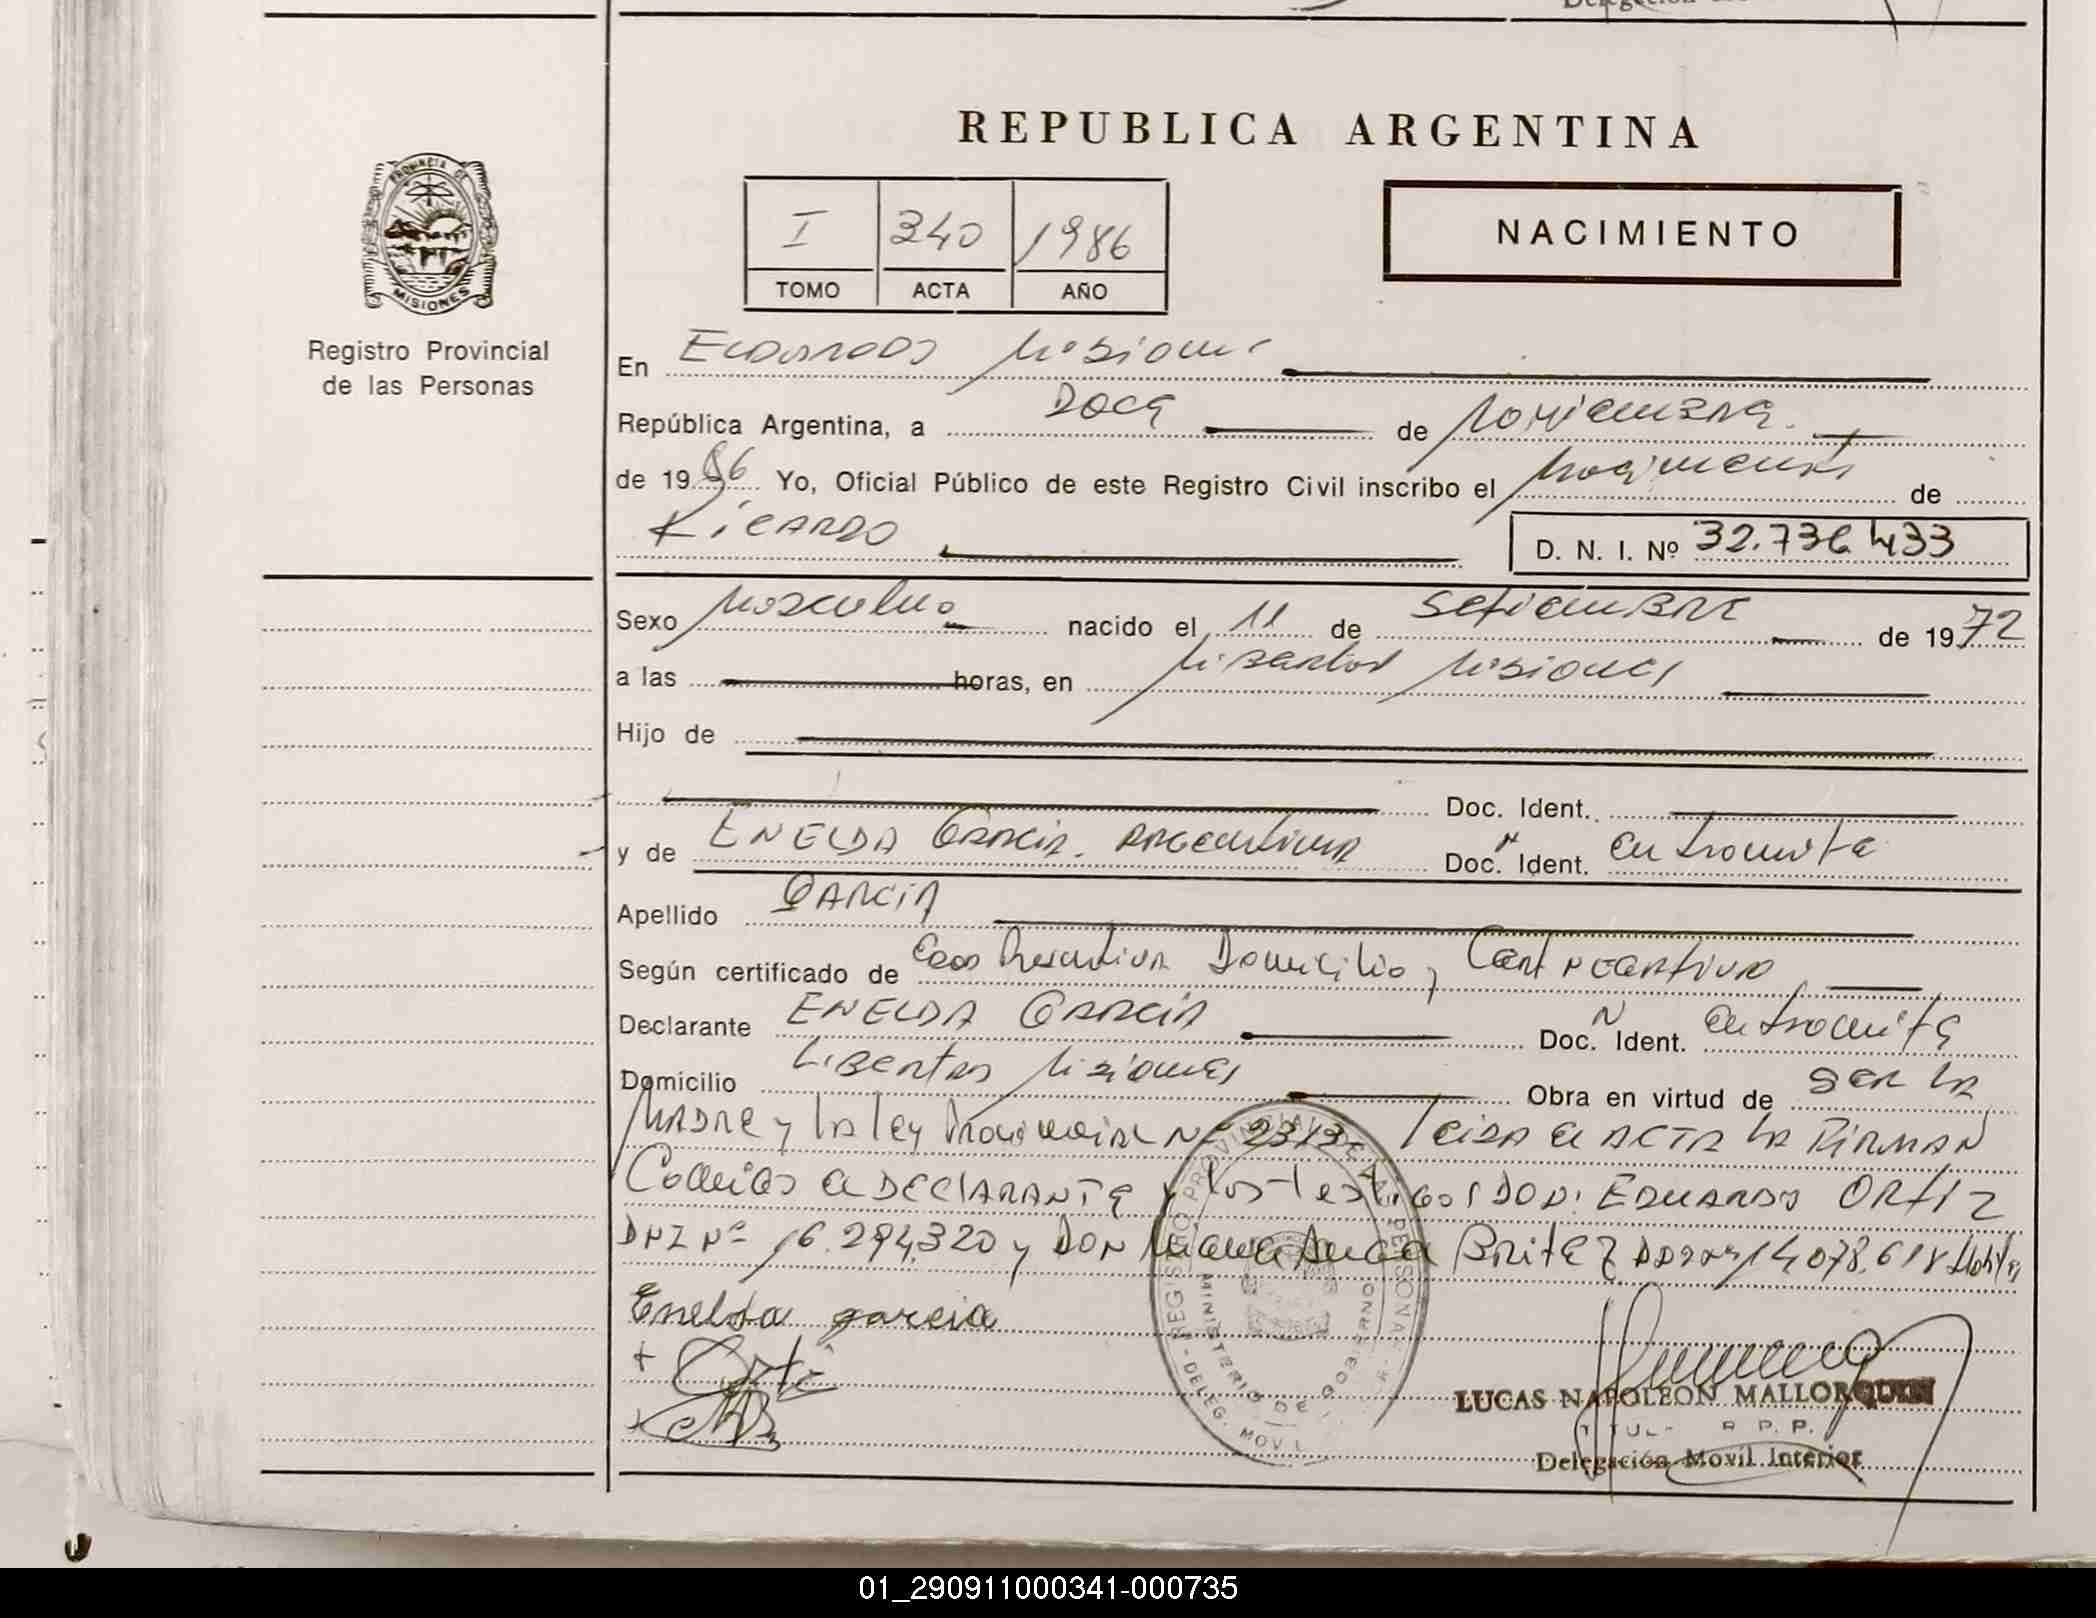 REPUBLICA ARGENTINA
PROVINCIA DE
MISIONES
Registro Provincial
de las Personas
I 340 1986
TOMO ACTA AÑO
NACIMIENTO
En Eldorado Misiones
República Argentina, a Doce de Noviembre
de 1986 Yo, Oficial Público de este Registro Civil inscribo el Nacimiento de
Ricardo D. N. I. Nº 32.736.433
Sexo Masculino nacido el 11 de Setiembre de 1972
a las horas, en Libertad Misiones
Hijo de
Doc. Ident.
y de ENELDA Garcia. Argentina Doc. Ident. en tramite
Apellido GARCIA
Según certificado de Domicilio y
Declarante ENELDA GARCIA Doc. Ident. en tramite
Domicilio Libertad Misiones Obra en virtud de SER LA
MADRE y la ley Provincial Nº 2313- leida el ACTA LA FIRMAN
Conmigo el DECLARANTE y los testigos DON: EDUARDO ORTIZ
DNI Nº 16.294.320 y DON Britez 14.078.618
Enelda garcia
REGISTRO PROVINCIAL DE LAS PERSONAS
MINISTERIO DE GOBIERNO
DELEG. MOVIL
LUCAS NAPOLEON MALLORQUIN
R. P. P.
Delegación Movil Interior
01_290911000341-000735